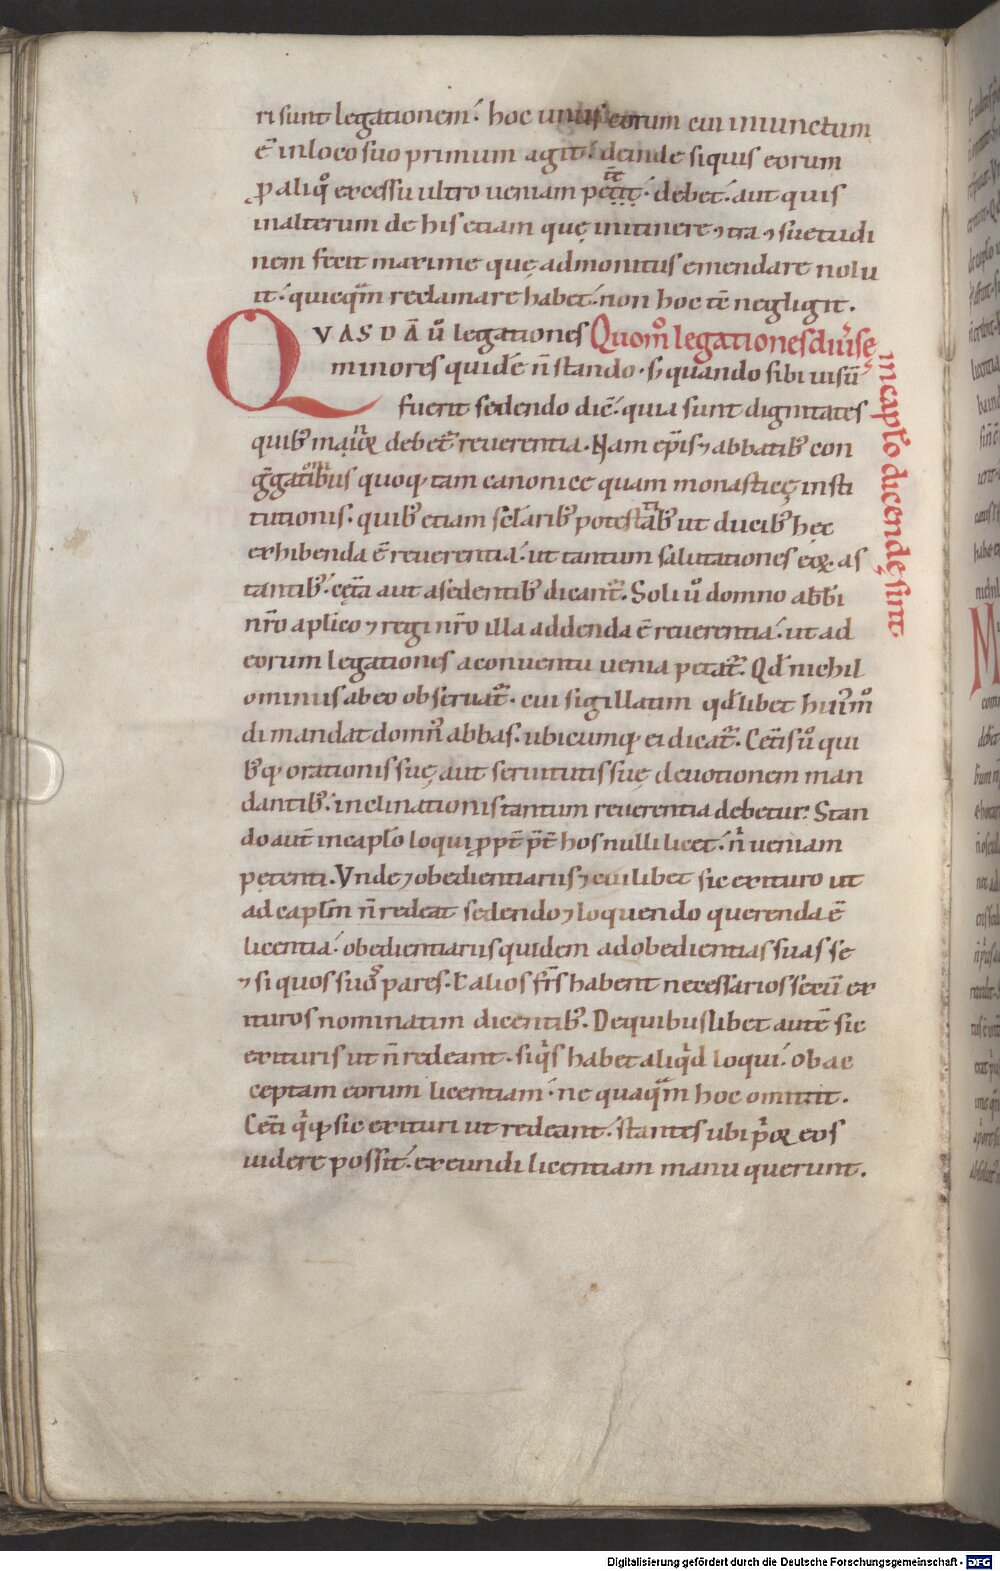 ri sunt legationem. hoc unus eorum cui iniunctum
ē in loco suo primum agit. deinde siquis eorum
ꝓ aliqͦ excessu ultro ueniam petit. debet. aut quis
inalterum de his etiam quę initinere ⁊tra ⁊suetudi
nem fecit maxime quę admonitus emendare nolu
it. quicqͣm reclamare habet. non hoc tc̄ negligit.
QVASDĀ uͦ legationes
Quomͦ legationes diuͥse
in capĺo dicendę sint.
minores quidē n̄ stando. sꝫ quando sibi uisū
fuerit sedendo dic̄. quia sunt dignitates
quibꝰ maiorꝝ debet᷑ reuerentia. Nam ep̄is ⁊ abbatibꝰ con
gͣgationibus quoqꝫ tam canonicę quam monasticę insti
tutionis. quibꝰ etiam scl̄aribꝰ potestatibꝰ ut ducibꝰ hęc
exhibenda ē reuerentia. ut tantum salutationes eoꝝ as
tantibꝰ. cęt̄a aut asedentibꝰ dicant᷑. Soli uͦ domno abb̄i
nr̄o apl̄ico ⁊ regi nr̄o illa addenda ē reuerentia. ut ad
eorum legationes aconuentu uenia petat᷑. Qd̄ nichil
ominus ab eo obseruat᷑. cui sigillatim qd̄libet huiͥmͦ
di mandat domn̄ abbas. ubicumqꝫ ei dicat᷑. Cet̄is uͦ qui
bꝰqꝫ orationis suę aut seruitutis suę deuotionem man
dantibꝰ. inclinationis tantum reuerentia debetur. Stan
do aut̄ in capĺo loqui ꝓpt̄ p̄t̄ hos nulli licet. nͥ ueniam
pętenti. Vnde ⁊ obedientiariis ⁊ cuilibet sic exituro ut
ad capl̄m n̄ redeat sedendo ⁊ loquendo querenda ē
licentia. obedientiariis quidem ad obedientias suas se
⁊ si quos suoꝝ pares. ł alios fr̄s habent necessarios secū ex
ituros nominatim dicentibꝰ. De quibuslibet autē sic
exituris ut n̄ redeant. siqͥs habet aliqͥd loqui. ob ac
ceptam eorum licentiam. ne quaqͣm hoc omittit.
Cet̄i qͥqꝫ sic exituri ut redeant. stantes ubi pͥoꝝ eos
uidere possit. exeundi licentiam manu querunt.
Digitalisierung gefördert durch die Deutsche Forschungsgemeinschaft - DFG